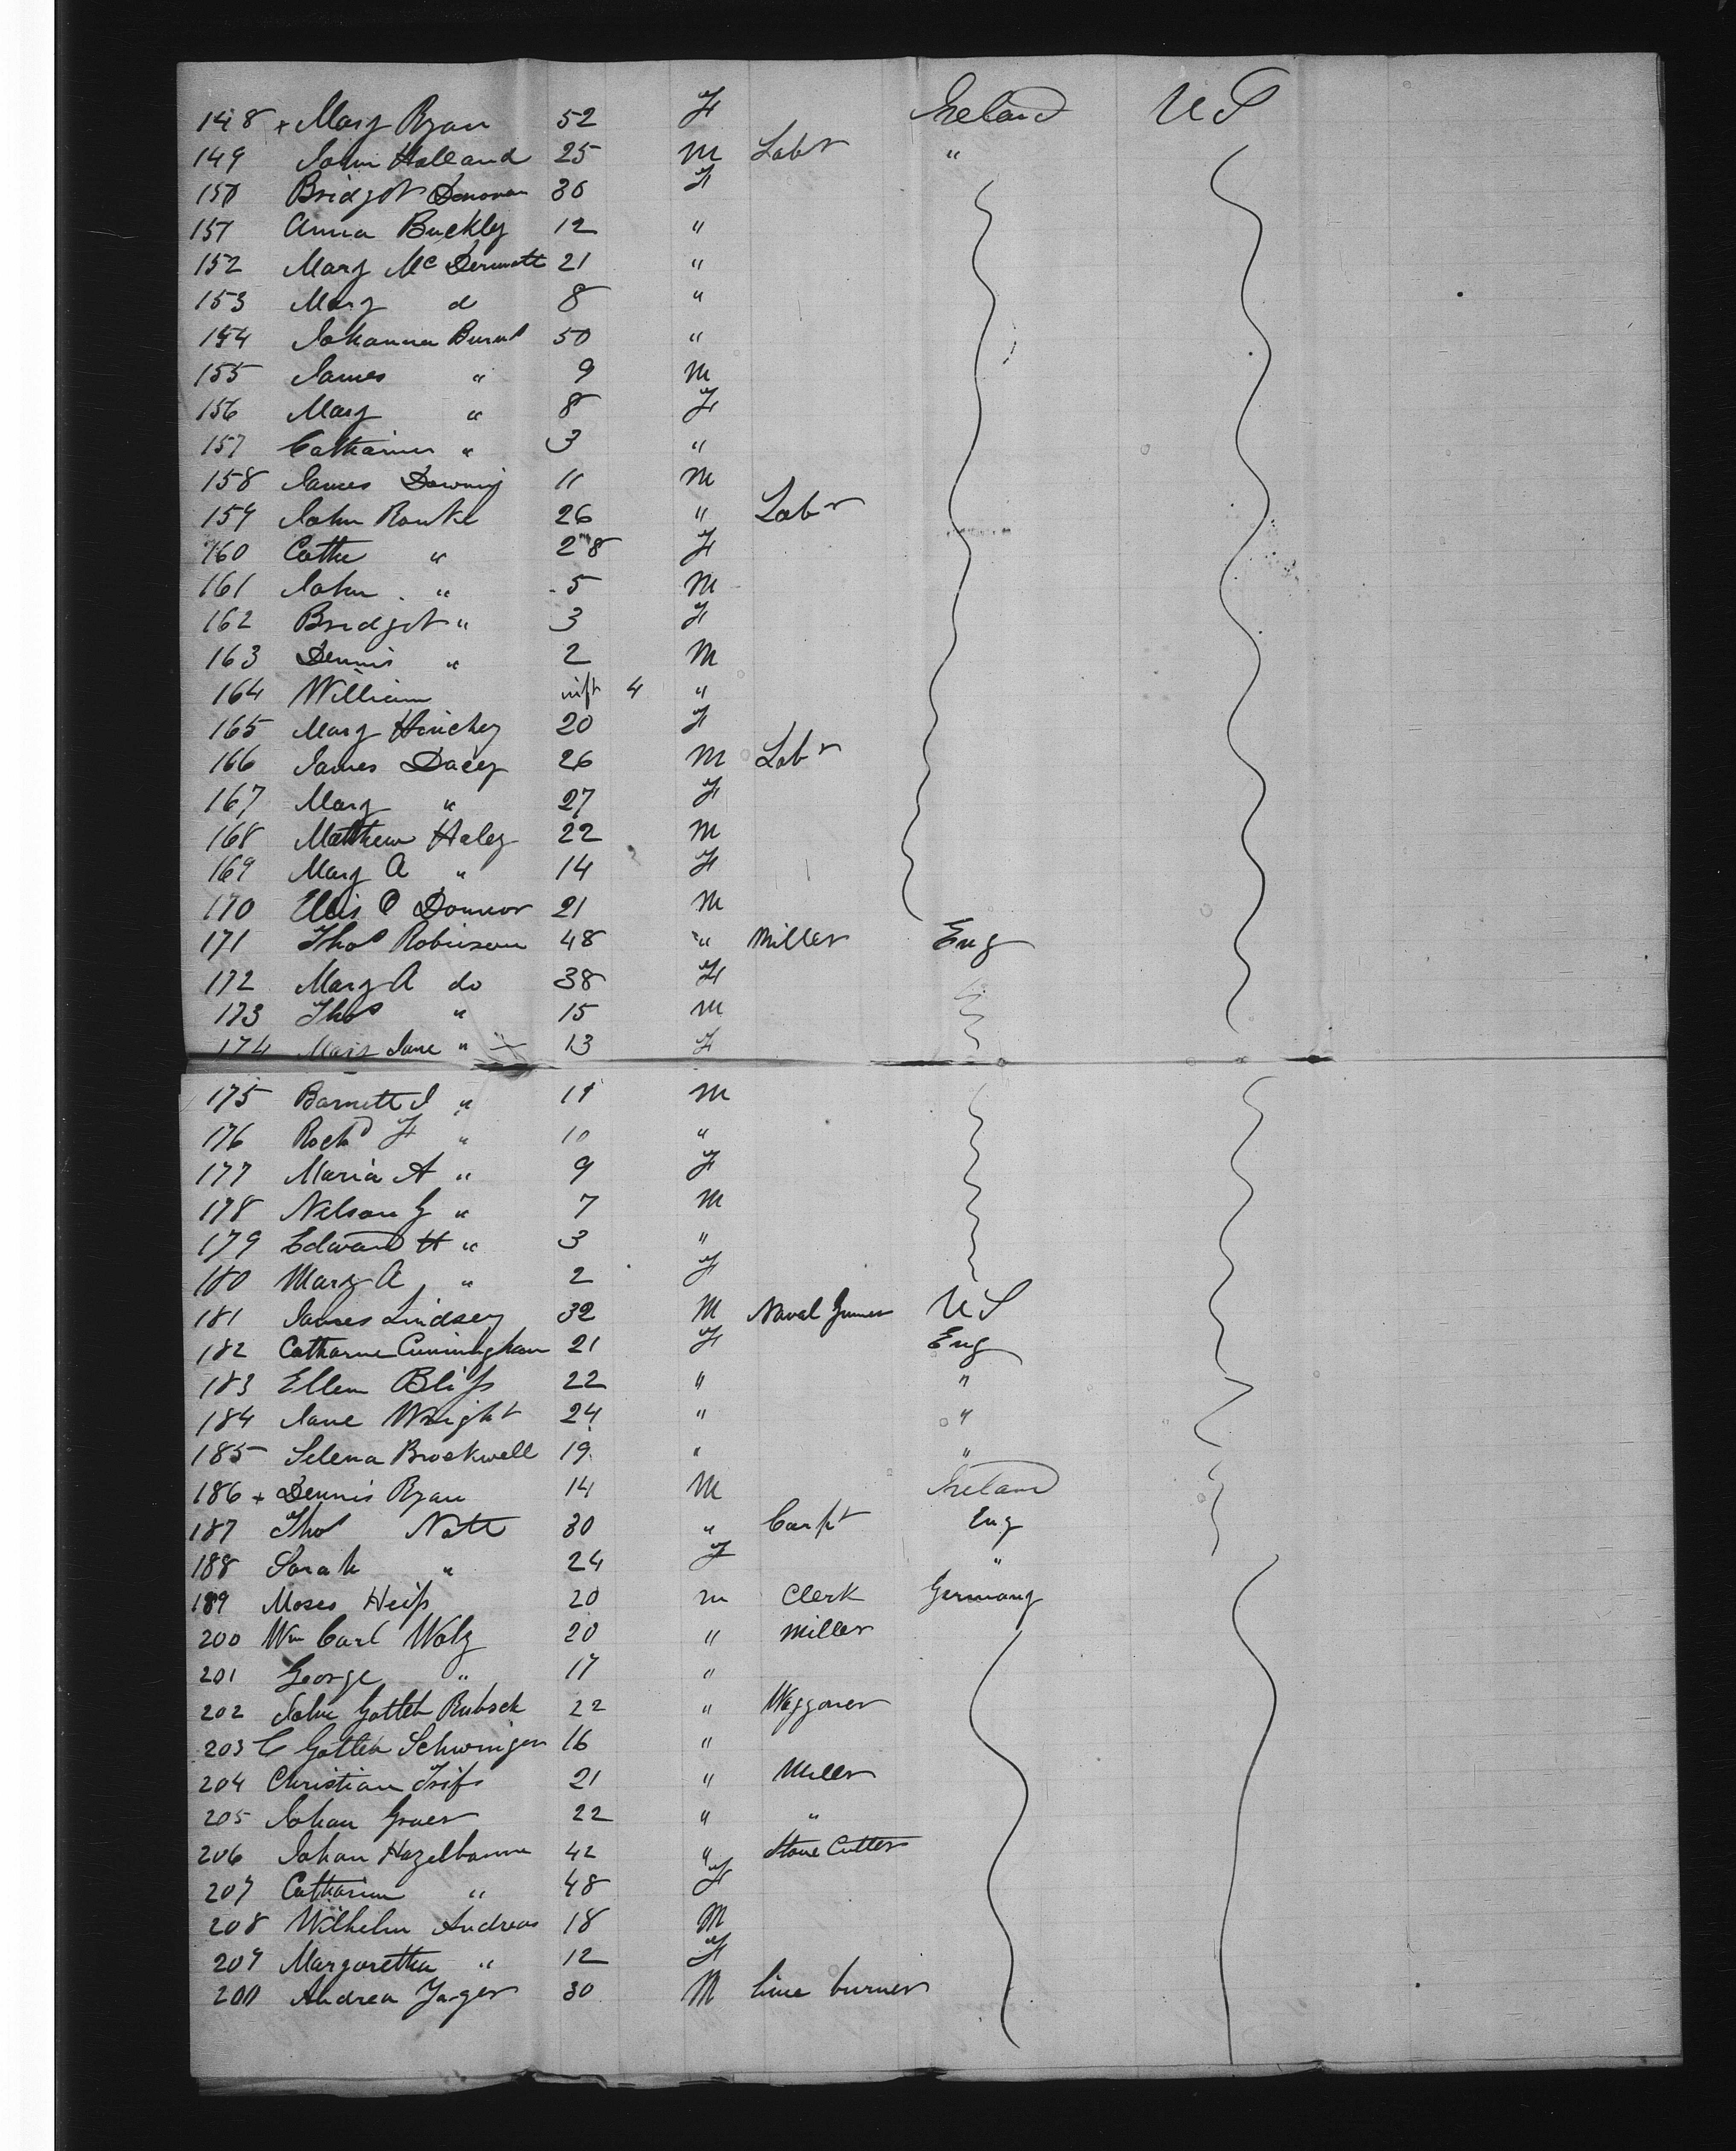 148 + Mary Ryan 52 F Ireland US
149 John Holland 25 M Labr "
150 Bridget Donovan 30 F
151 Anna Buckley 12 "
152 Mary McDermott 21 "
153 Mary d 8 "
154 Johanna Burns 50 "
155 James " 9 M
156 Mary " 8 F
157 Catharine " 3 "
158 James Downing 11 M
159 John Rourke 26 " Labr
160 Cathe " 28 F
161 John " 5 M
162 Bridget " 3 F
163 Dennis " 2 M
164 William inft 4 "
165 Mary Hinchey 20 F
166 James Dacey 26 M Labr
167 Mary " 27 F
168 Matthew Haley 22 M
169 Mary A " 14 F
170 O Donnor 21 M
171 Thos Robinson 48 " Miller Eng
172 Mary A do 38 F
173 Thos " 15 M
174 Mary Jane " 13 F
175 Barnett J " 11 M
176 F " 10 "
177 Maria A " 9 F
178 Nelson G " 7 M
179 Edward H " 3 "
180 Mary A " 2 F
181 James Lindsey 32 M Naval US
182 Catharine Cunningham 21 F Eng
183 Ellen Bliss 22 " "
184 Jane Wright 24 " "
185 Selena Brockwell 19 " "
186 + Dennis Ryan 14 M Ireland
187 Thos Nott 30 " Carpt Eng
188 Sarah " 24 F "
189 Moses Heiss 20 M Clerk Germany
200 Wm Carl Walz 20 " Miller
201 George " 17 "
202 John Gottleb Rubsck 22 " Waggoner
203 C Gottleb Schwinger 16 "
204 Christian 21 " Miller
205 Johan Graer 22 " "
206 Johan Hazelbaum 42 " Stone Cutter
207 Catharina " 48 F
208 Wilhelm Andreas 18 M
209 Margaretha " 12 F
200 Andrea Jager 30 M Lime burner